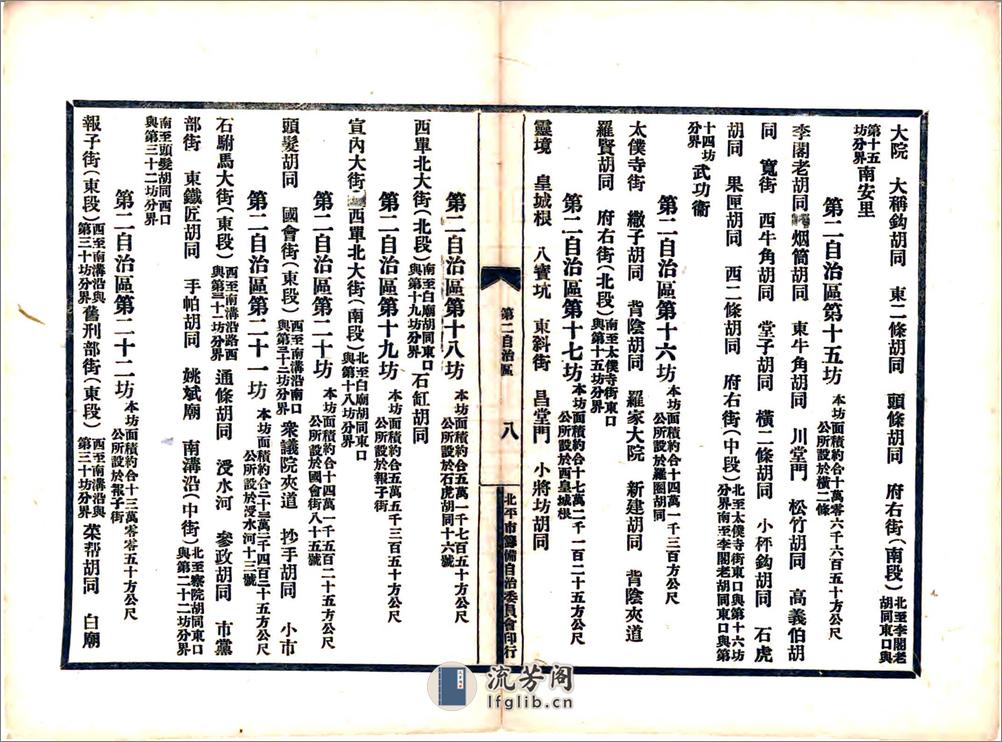 大院　大秤鈎胡同　東二條胡同　頭條胡同　府右街（南段）北至李閣老胡同東口與
第十五坊分界南安里
第二自治區第十五坊　本坊面積約合十萬零六千六百五十方公尺公所設於橫二條
李閣老胡同　烟筒胡同　東牛角胡同　川堂門　松竹胡同　高義伯胡
同　寬街　西牛角胡同　堂子胡同　橫二條胡同　小秤鈎胡同　石虎
胡同　果匣胡同　西二條胡同　府右街（中段）北至太僕寺街東口與第十六坊分界南至李閣老胡同東口與第
十四坊分界　武功衛
第二自治區第十六坊　本坊面積約合十四萬一千三百方公尺公所設於羅圈胡同
太僕寺街　繖子胡同　背陰胡同　羅家大院　新建胡同　背陰夾道
羅賢胡同　府右街（北段）南至太僕寺街東口與第十五坊分界
第二自治區第十七坊　本坊面積約合十七萬二千一百二十五方公尺公所設於西皇城根
靈境　皇城根　八寶坑　東斜街　昌堂門　小將坊胡同
第二自治區　八　北平市籌備自治委員會印行
第二自治區第十八坊　本坊面積約合五萬一千七百五十方公尺公所設於石虎胡同十六號
西單北大街（北段）南至白廟胡同東口與第十九坊分界石缸胡同
第二自治區第十九坊　本坊面積約合五萬五千三百五十方公尺公所設於報子街
宣內大街　西單北大街（南段）北至白廟胡同東口與第十八坊分界
第二自治區第二十坊　本坊面積約合十四萬一千五百二十五方公尺公所設於國會街八十五號
頭髮胡同　國會街（東段）西至南溝沿南口與第三十二坊分界衆議院夾道　抄手胡同　小市
第二自治區第二十一坊　本坊面積約合二十三萬二千四百二十五方公尺公所設於浸水河十三號
石駙馬大街（東段）西至南溝沿路西與第三十一坊分界通條胡同　浸水河　參政胡同　市黨
部街　東鐵匠胡同　手帕胡同　姚斌廟　南溝沿（中街）北至察院胡同東口與第二十二坊分界
南至頭髮胡同西口與第三十二坊分界
第二自治區第二十二坊　本坊面積約合十三萬零零五十方公尺公所設於報子街
報子街（東段）西至南溝沿與第三十坊分界舊刑部街（東段）西至南溝沿與第三十坊分界　菜幇胡同　白廟
流芳阁
lfglib.cn